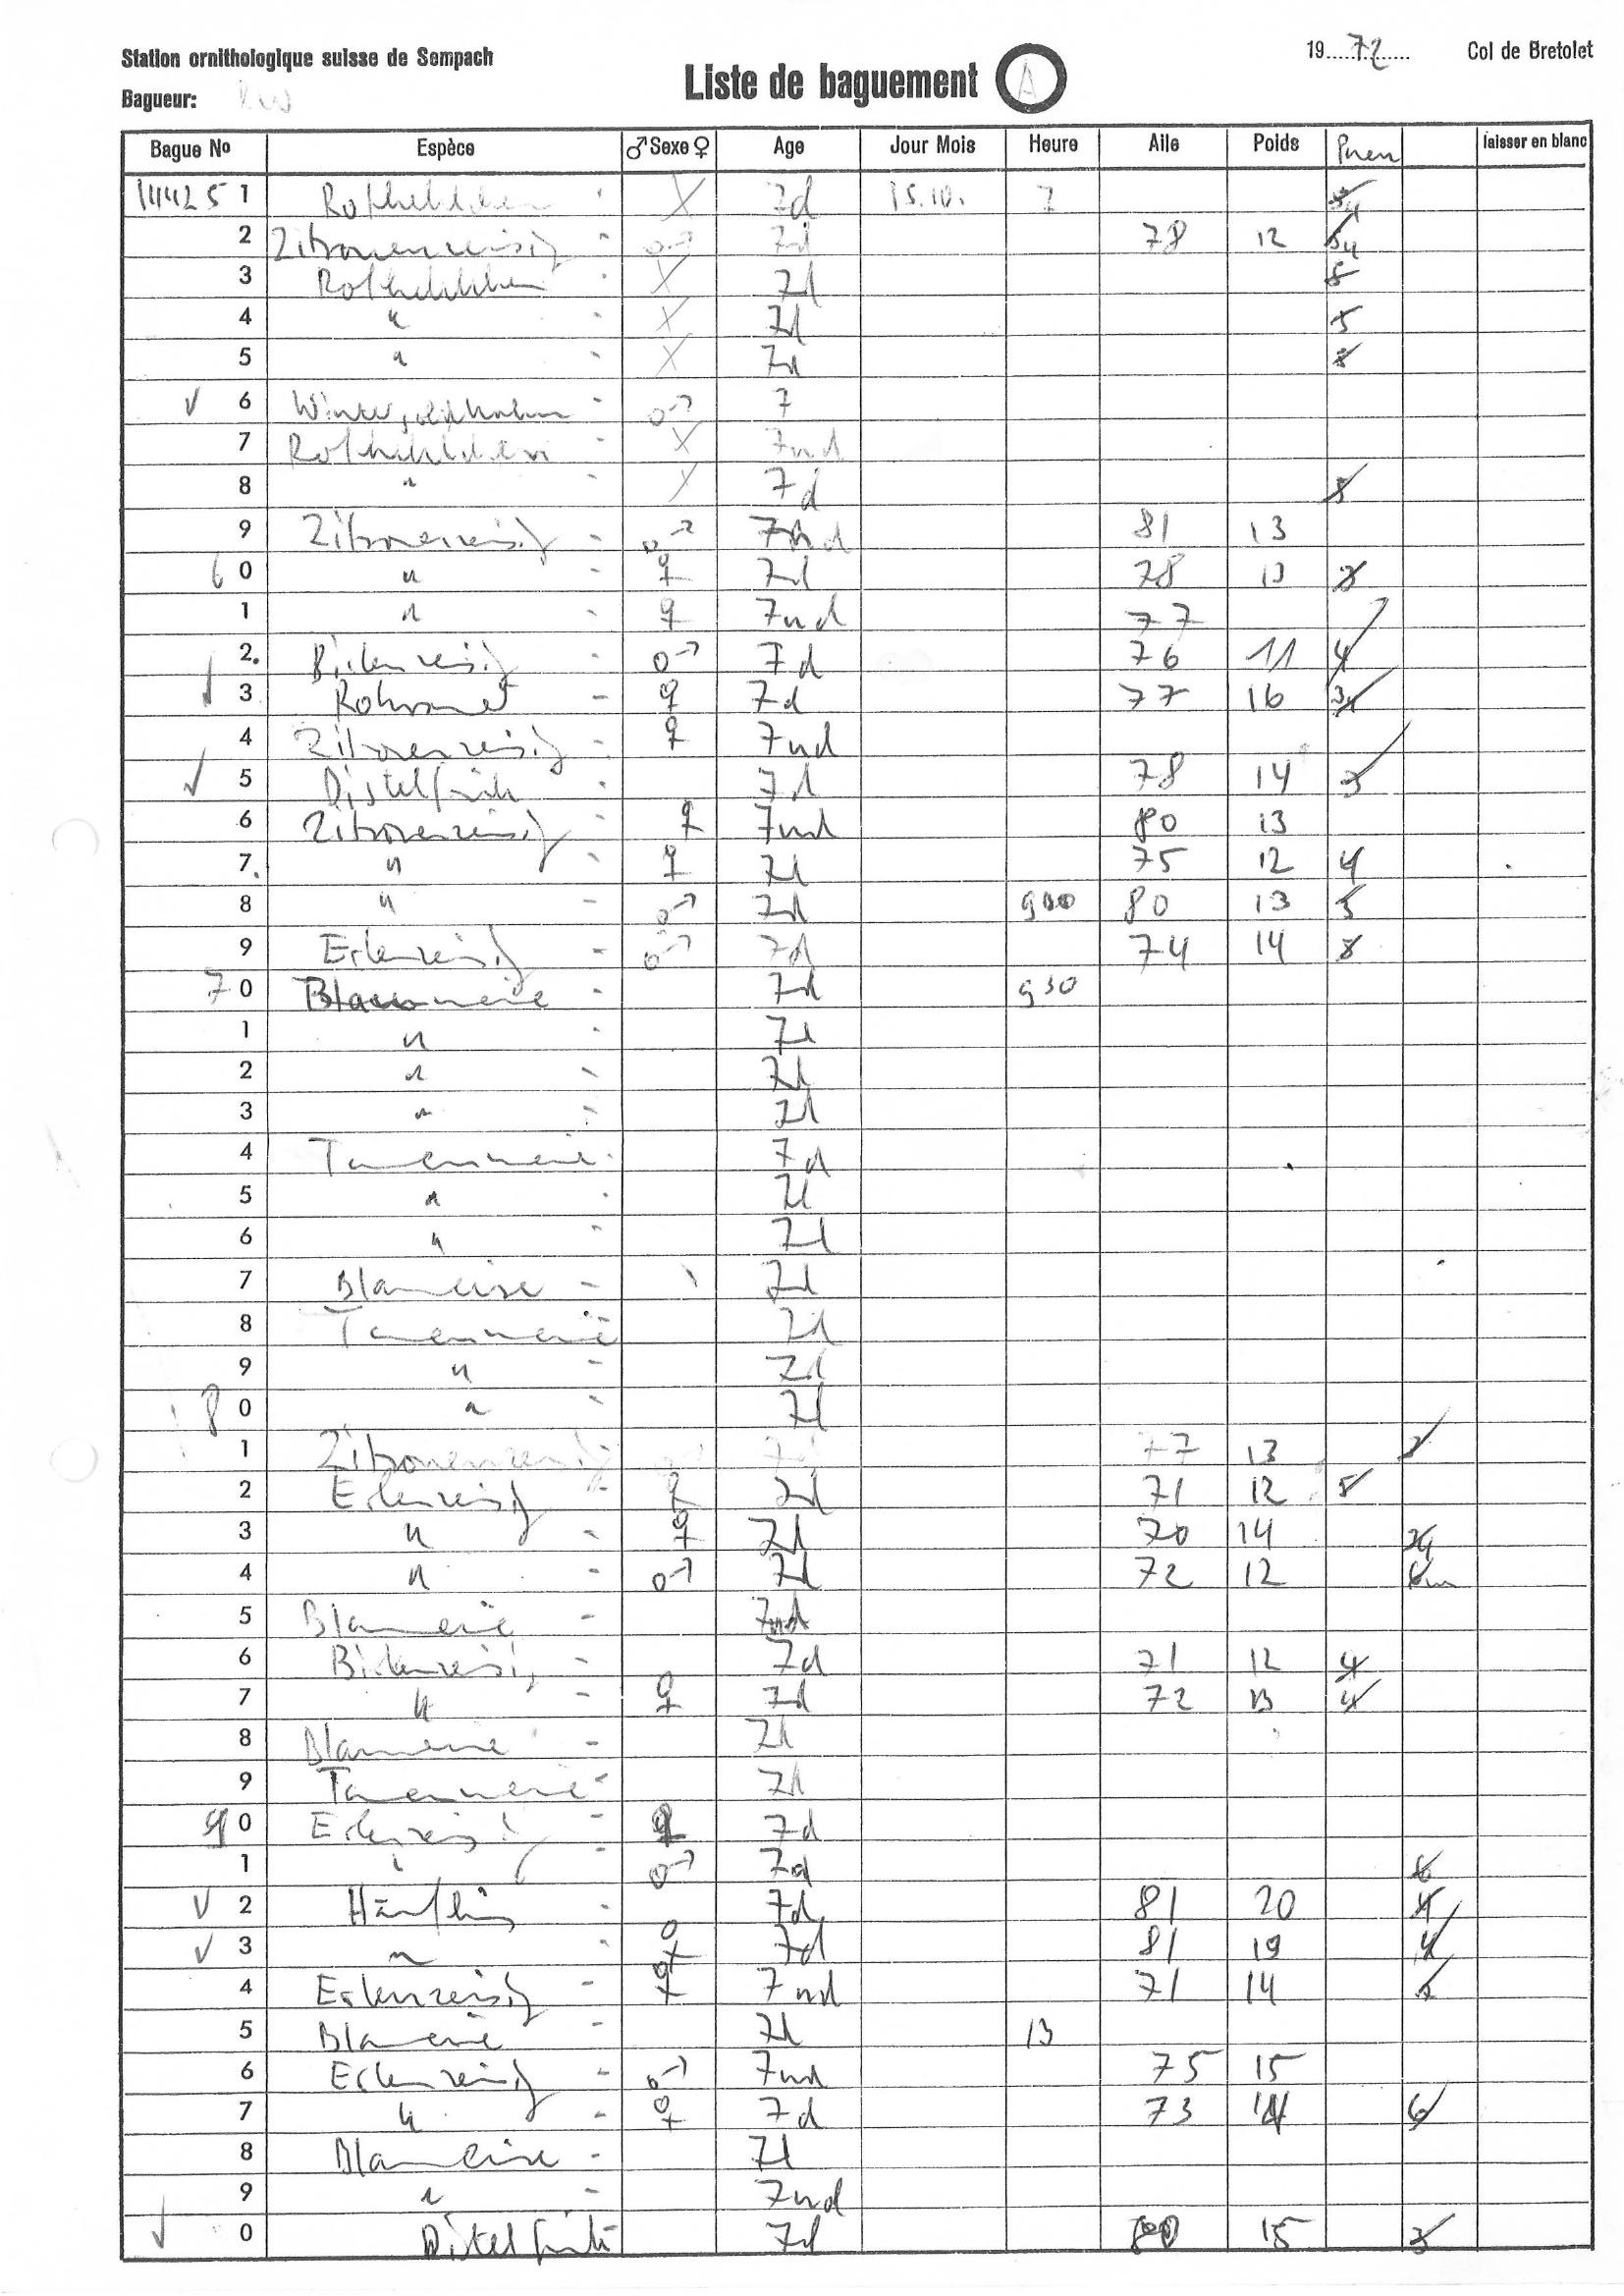 Station ornithologique suisse de Sempach
19 72 Col de Bretolet
Liste de baguement A
Bagueur:
Bague No Espèce ♂ Sexe ♀ Age Jour Mois Heure Aile Poids Pneu laisser en blanc
14425 1 Rotkehlchen X 7d 15.10. 7
2 Zitronenzeisig - ♂ 7d 78 12
3 Rotkehlchen X 7d 5
4 " - X 7d 5
5 " - X 7d
√ 6 Wintergoldhahn - ♂ 7
7 Rotkehlchen - X 7nd
8 " - X 7d 8
9 Zitronenzeisig - ♂ 7nd 81 13
6 0 " - ♀ 7d 78 13 8
1 " - ♀ 7nd 77
2. Birkenzeisig - ♂ 7d 76 11 4
√ 3 - ♀ 7d 77 16
4 Zitronenzeisig - ♀ 7nd
√ 5 Distelfink - 7d 78 14 3
6 Zitronenzeisig - ♀ 7nd 80 13
7. " - ♀ 7d 75 12 4
8 " - ♂ 7d 900 80 13 5
9 Erlenzeisig - ♂ 7d 74 14 8
7 0 Blaumeise - 7d 930
1 " - 7d
2 " - 7d
3 " - 7d
4 Tannenmeise - 7d
5 " - 7d
6 " - 7d
7 Blaumeise - 7d
8 Tannenmeise 7d
9 " - 7d
8 0 " - 7d
1 Zitronenzeisig - 77 13
2 Erlenzeisig - ♀ 7d 71 12 5
3 " - ♀ 7d 70 14
4 " - ♂ 7d 72 12
5 Blaumeise - 7nd
6 Birkenzeisig - 7d 71 12 4
7 " - ♀ 7d 72 13 4
8 Blaumeise - 7d
9 Tannenmeise - 7d
9 0 Erlenzeisig - ♀ 7d
1 " - ♂ 7d 6
√ 2 Hänfling - 7d 81 20 4
√ 3 " - ♀ 7d 81 19 4
4 Erlenzeisig - ♀ 7nd 71 14
5 Blaumeise - 7d 13
6 Erlenzeisig - ♂ 7nd 75 15
7 " - ♀ 7d 73 14 6
8 Blaumeise - 7d
9 " - 7nd
√ 0 Distelfink 7d 80 15 3